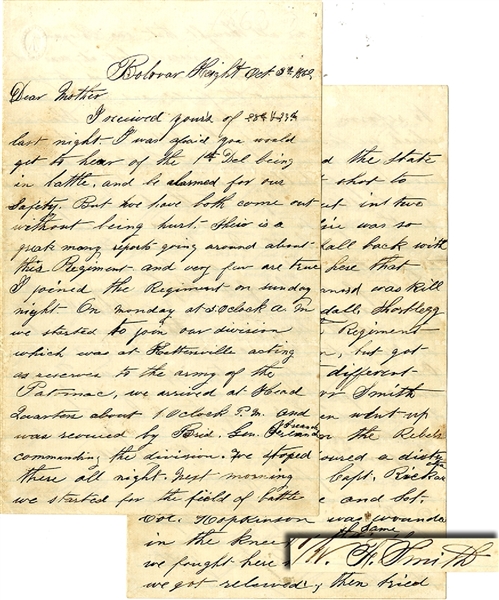 Bolovar Heights Oct. 3th 1862
Dear Mother
I received yours of 28th & 29th
last night. I was afraid you would
get to hear of the 1st Del being
in battle, and be alarmed for our
safety. But we have both come out
without being hurt. Their is a
great many reports going around about
this Regiment and very few are true
I joined the Regiment on sunday
night. On monday at 3.Oclock a. m
we started to join our division
which was at Kettersville acting
as reserve to the army of the
Patomac, we arrived at Head
Quarters about 1 Oclock P.M. and
was received by Brid. Gen. French
commanding the division. We stoped
there all night. Next morning
we started for the field of battle
d the state
shot to
t in two
was so
all back with
here that
was kill
dall. Shortlegg
Regiment
n, but got
different
Smith
en went up
the Rebels
oured a disty
Capt. Rickar
e and Lot.
Col. Hopkinson was wounde
in the knee
Same
we fought here
we got releived; then tried
W. F. Smith